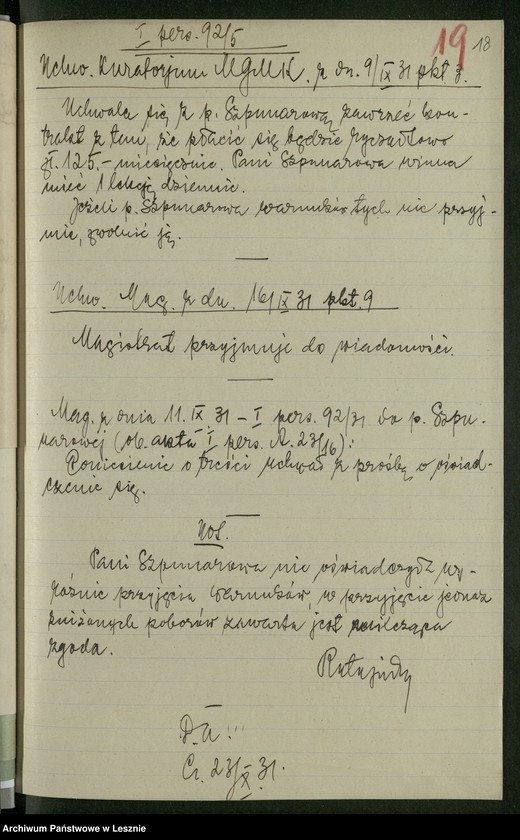 I pers. 92/5
19 18
Uchw. Kuratorjum MGMK. z dn. 9/IX 31 pkt 3.
Uchwala się z p. Szpunarową zawrzeć kon-
trakt z tem, że płacić się będzie ryczałtowo
zł. 125.- miesięcznie. Pani Szpunarowa winna
mieć 1 lekcję dziennie.
Jeżeli p. Szpunarowa warunków tych nie przyj-
mie, zwolnić ją.
Uchw. Mag. z dn. 16/IX 31 pkt. 9
Magistrat przyjmuje do wiadomości.
Mag. z dnia 11. IX 31 - I pers. 92/31 do p. Szpu-
narowej (ob. akta I pers. A. 23/16):
Doniesienie o treści uchwał z prośbą o oświad-
czenie się.
Not.
Pani Szpunarowa nie oświadczyła wy-
raźnie przyjęcia warunków, w przyjęcie jednak
zniżonych poborów zawarta jest milcząca
zgoda.
Ratajczak
D. A
Cz. 23/X 31.
Archiwum Państwowe w Lesznie